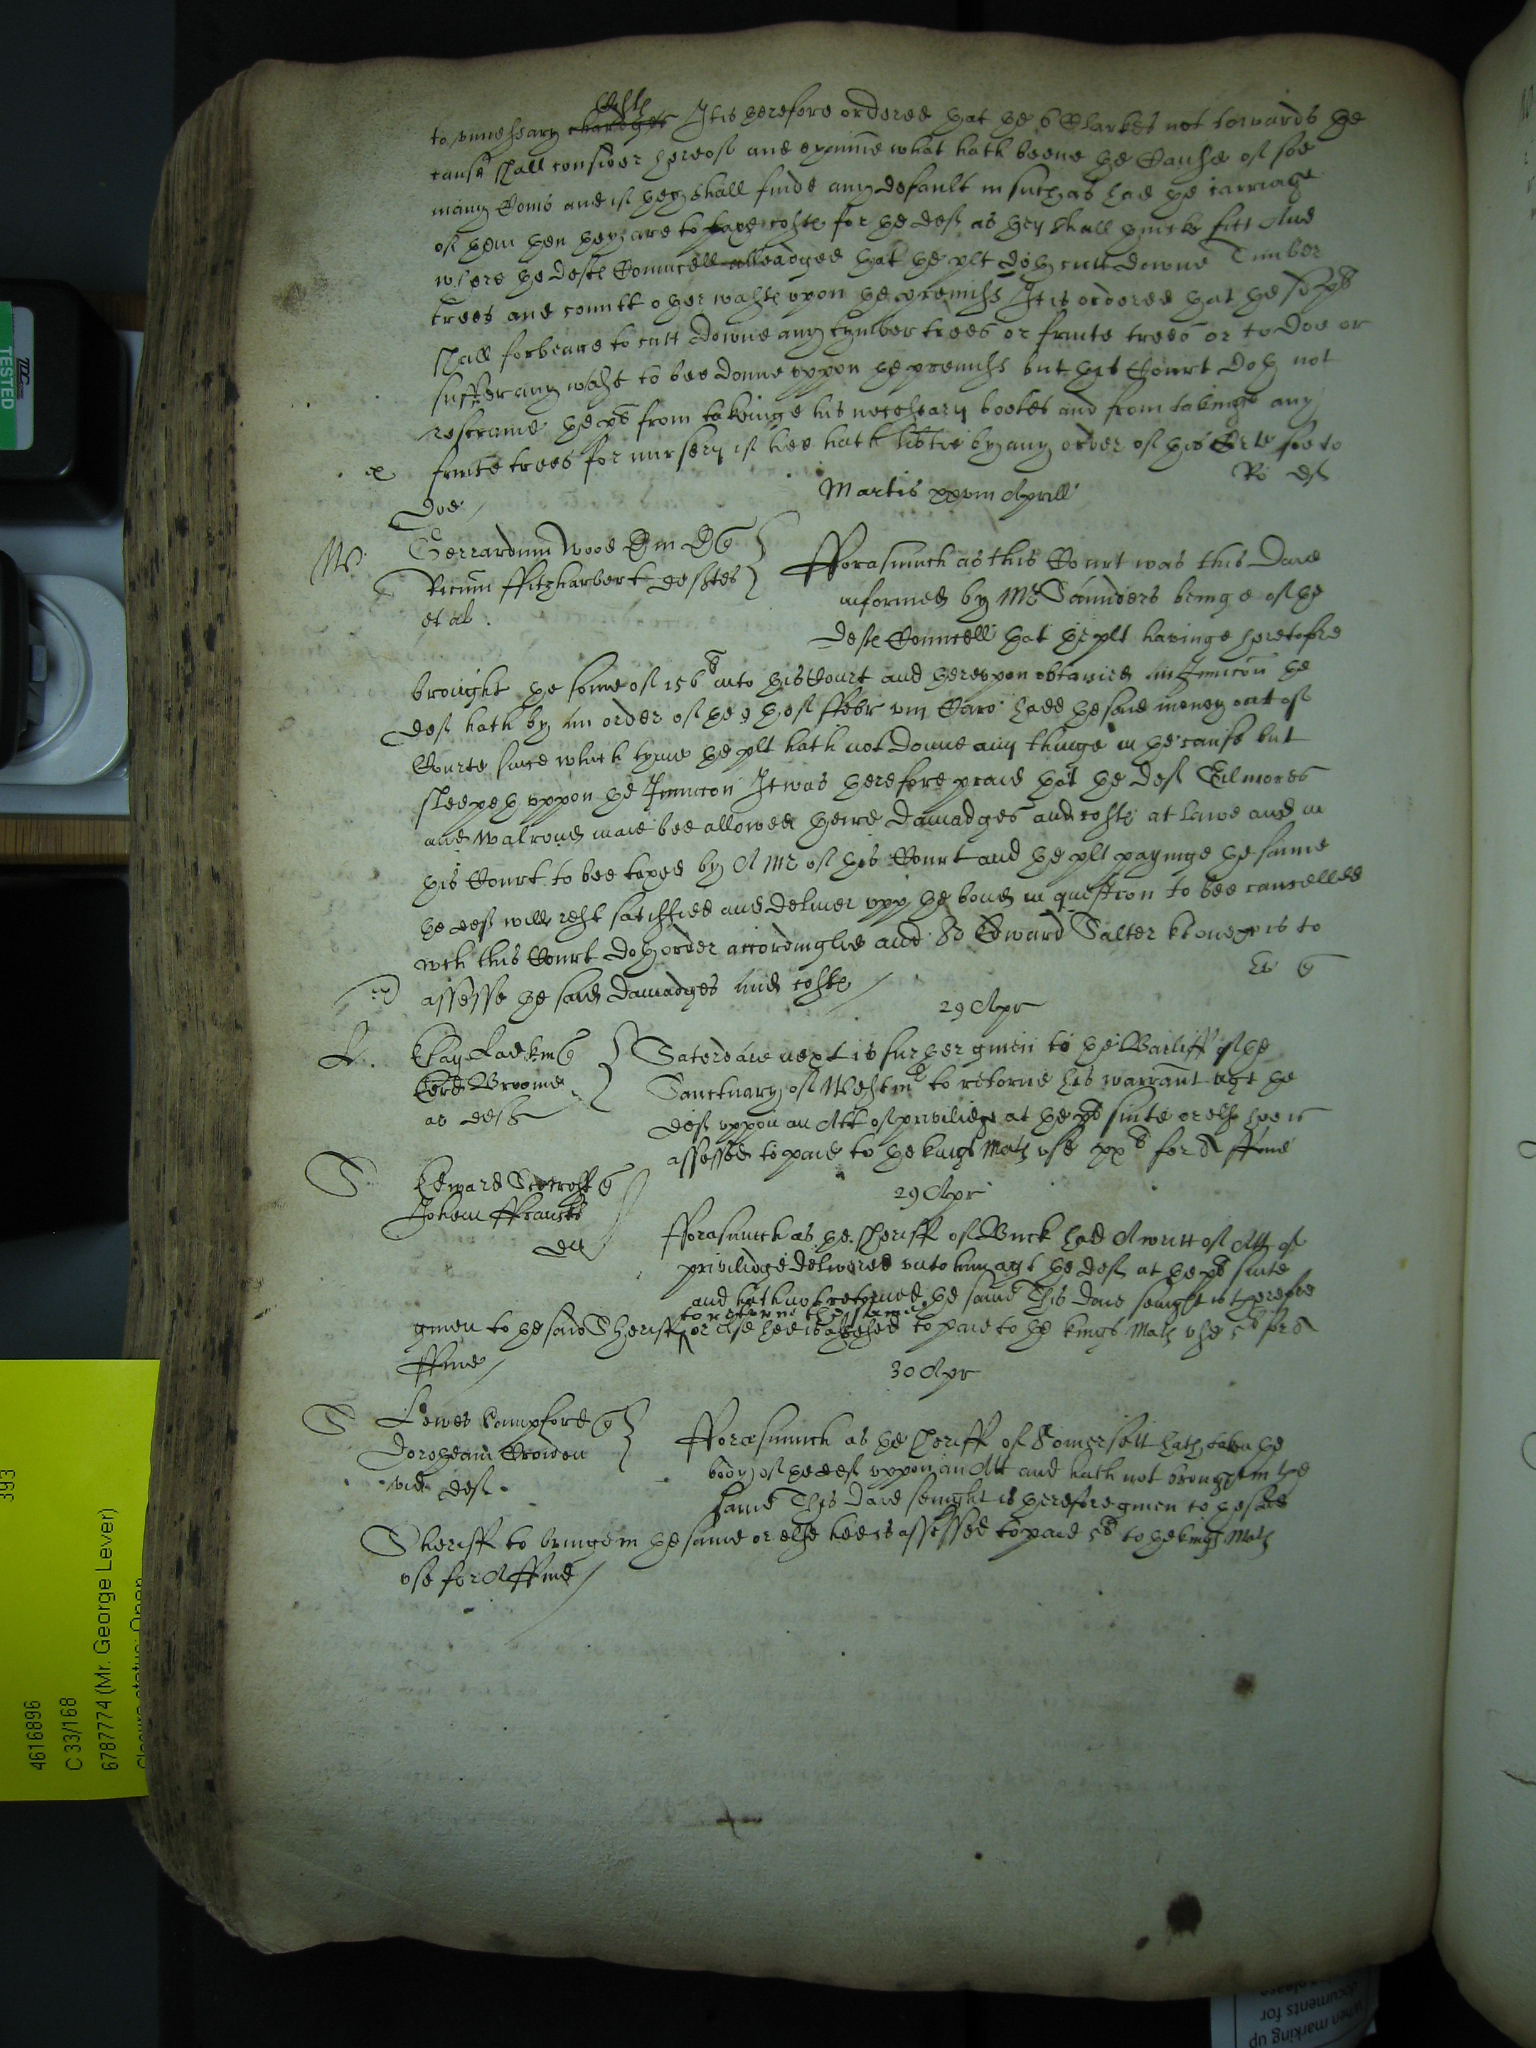 Coste
to unnessary charges It is therefore ordered that the 6 Clarkes not towards the
cause shall consider hereof and examine what hath beene the Cause of soe
many Comis and if they shall finde any default in such as had the carriage
of them then they are to taxe coste for the def as they shall thincke fitt And
where the defte Councell alleadged that the plt doth cutt downe Timber
trees and comitt other waste upon the premiss It is ordered that the said plt
shall forbeare to cutt downe any tymber trees or fruite trees or to doe or
suffer any waste to bee donne uppon the premiss but this Court doth not
restraine the plt from takeinge his necessary bootes and from takinge any
fruite trees for nursery if hee hath libtie by any order of this Crte soe to
doe
Ro def
Martis xxviii Aprill
W
Gerrardum Wood
Ricum ffitzharbert deftes
et al
fforasmuch as this Court was this daie
informed by Mr Saunders being of the
defte Councell that the plt havinge heretofore
brought the some of 156 li into this Court and thereupon obtained iniunccon the
def hath by an order of the 9th of ffebr viii Caro had the said money out of
Courte since which tyme the plt hath not donne any thinge in the cause but
sleepeth uppon the Iniunccon It was therefore praied that the def Gilmores
and Walrond maie bee allowed theire damadges and coste at lawe and in
this Court to bee taxed by A Mr of this Court and the plt payinge the same
the def will rest satisfied and deliver upp the bond in question to bee cancelled
wch this Court doth order accordinglie and Sr Edward Salter knight is to
assesse the said damadges and coste
29 Apr
Saterdaie next is further given to the Bailiff of the
Sanctuary of Westmr to retorne his warrant agt the
def uppon an Att of priviledge at the plt suite or else hee is
assessed to paie to the kings Mats use xx s for A ffine
29 Apr
S
Johem ffrancke
def
fforasmuch as the Sheriff of Buck had A writt of Att of
priviledge delivered unto him agt the def at the plt suite
and hath not retorned the same This daie senight is therefore
to retorne the same
given to the said Sheriff or else hee is assessed to paie to the kings Mats use 5 li for A
ffine
30 Apr
S
Lewes
Dorotheam
vid def
fforasmuch as the Sheriff of Somersett hath taken the
body of the def uppon an Att and hath not brought in the
same This daie senight is therefore given to the said
Sheriff to bringe in the same or else hee is assessed to paie 5 li to the kings Mats
use for A ffine
TESTED
393
4616896
C 33/168
6787774 (Mr. George Lever)
Closure status: Open
when marking up
documents for
please